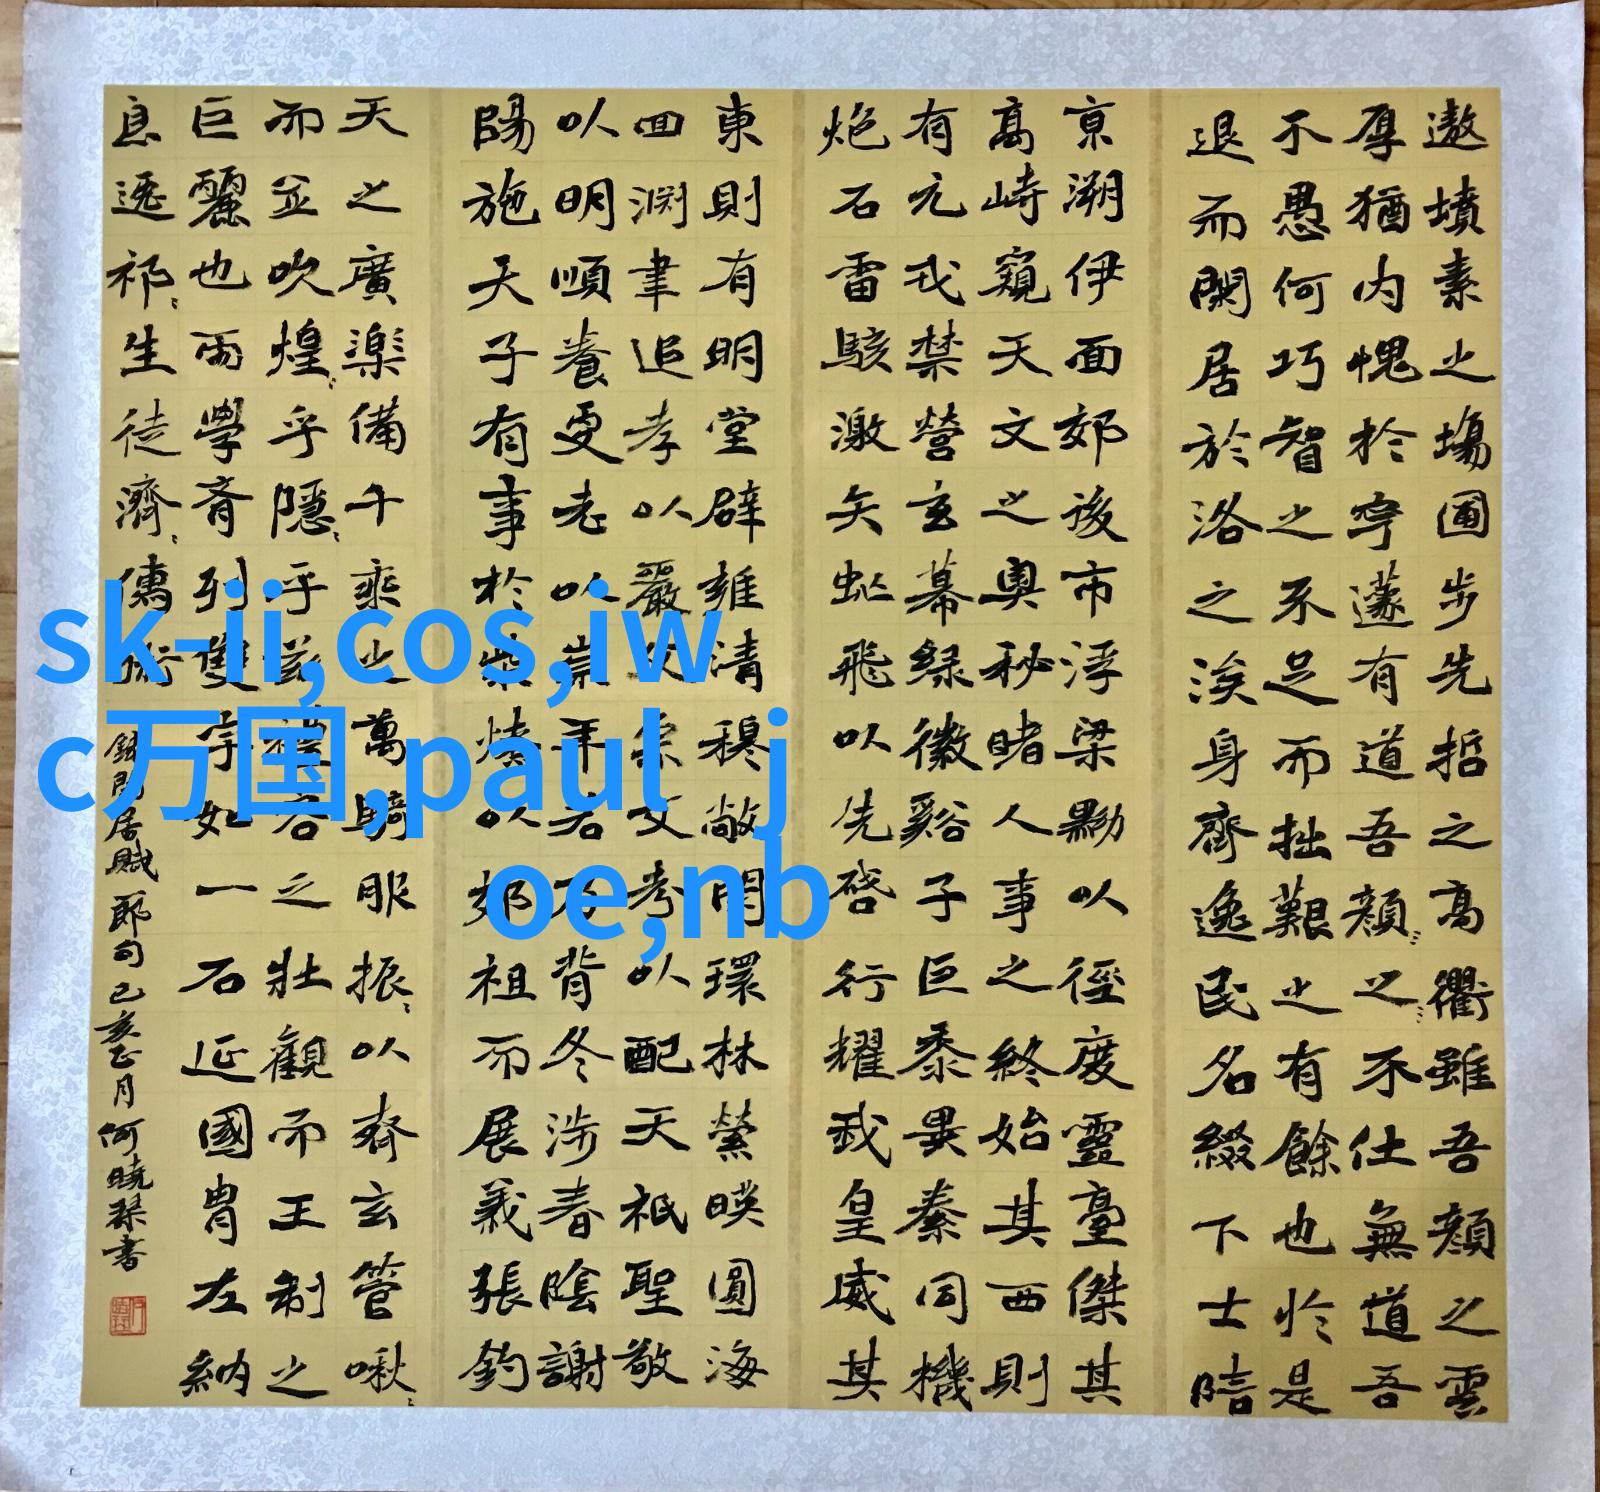 遨墳素之場圃步先哲之高衢雖吾顔之雲
厚猶内愧於寧蘧有道吾顔之不仕無道吾
不愚何巧智之不足而拙艱之有餘也於是
退而閑居於洛之涘身齊逸民名綴下士陪
京溯伊面郊後市浮梁黝以徑度靈臺傑其
高峙窺天文之奥秘睹人事之終始其西則
有元戎禁營玄幕緑徽谿子巨黍異絭同機
炮石雷駭激矢虻飛以先啓行耀我皇威其
東則有明堂辟雍清穆敞閑環林縈暎圓海
回淵聿追孝以嚴父宗文考以配天祗聖敬
以明順養更老以崇年若乃背冬涉春陰謝
陽施天子有事於柴燎以郊祖而展義張鈞
天之廣樂備千乘之萬騎服振〻以齊玄管啾〻
而並吹煌〻乎隱〻乎兹禮容之壯觀而王制之
巨麗也兩學齊列雙宇如一右延國胄左納
良逸祁〻生徒濟〻儒術
録閑居賦節句己亥正月何曉琛書
sk-ii,cos,iw
c万国,paul j
oe,nb